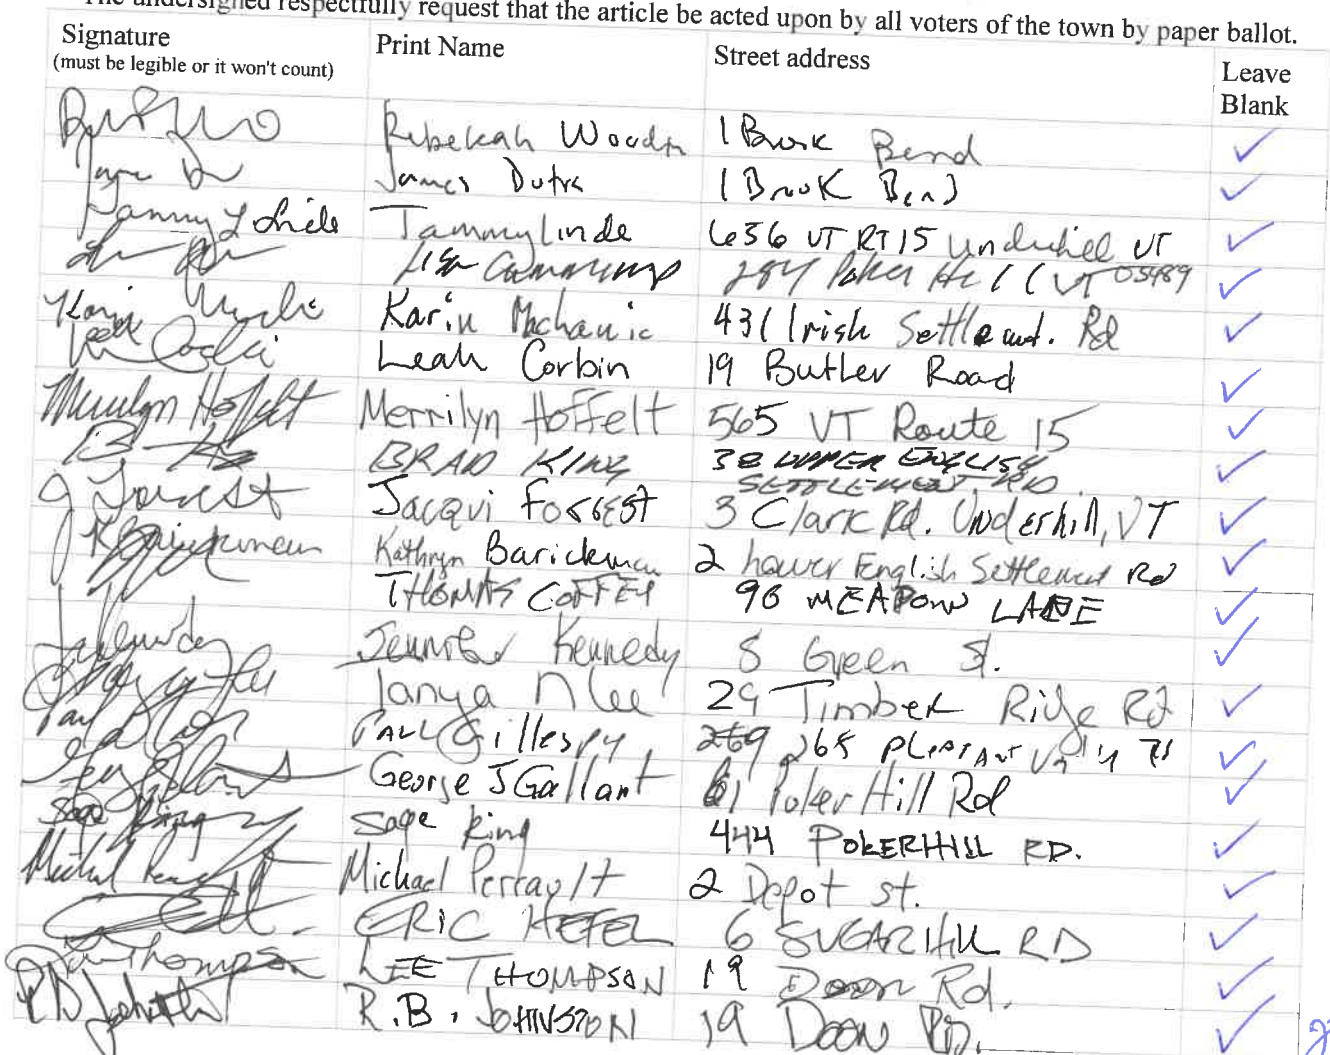 The undersigned respectfully request that the article be acted upon by all voters of the town by paper ballot.
Signature Print Name Street address Leave
(must be legible or it won't count) Blank
Rebekah 1 Brook Bend
James Dutra 1 Brook Bend
Tammy L Linde Tammy Linde 656 VT RT 15 Underhill VT
Lisa Cummings 284 Poker Hill VT 05489
Karin Mechanic 431 Irish Settlement. Rd
Leah Corbin 19 Butler Road
Merrilyn Hoffelt Merrilyn Hoffelt 565 VT Route 15
BRAD KING 38 UPPER ENGLISH
SETTLEMENT RD
J Forrest Jacqui Forrest 3 Clark Rd. Underhill, VT
Kathryn Barickman 2 Lower English Settlement Rd
THOMAS COFFEY 96 MEADOW LANE
Jennifer Kennedy 8 Green St.
Tanya N Lee 29 Timber Ridge Rd
PAUL Gillespy 269 265 PLEASANT Vally Rd
George J Gallant 61 Poker Hill Rd
Sage King Sage King 444 POKERHILL RD.
Michael Perrault Michael Perrault 2 Depot St.
ERIC HEFEL 6 SUGARHILL RD
Lee Thompson LEE THOMPSON 19 Doon Rd.
RB Johnston R.B. JOHNSTON 19 Doon RD.